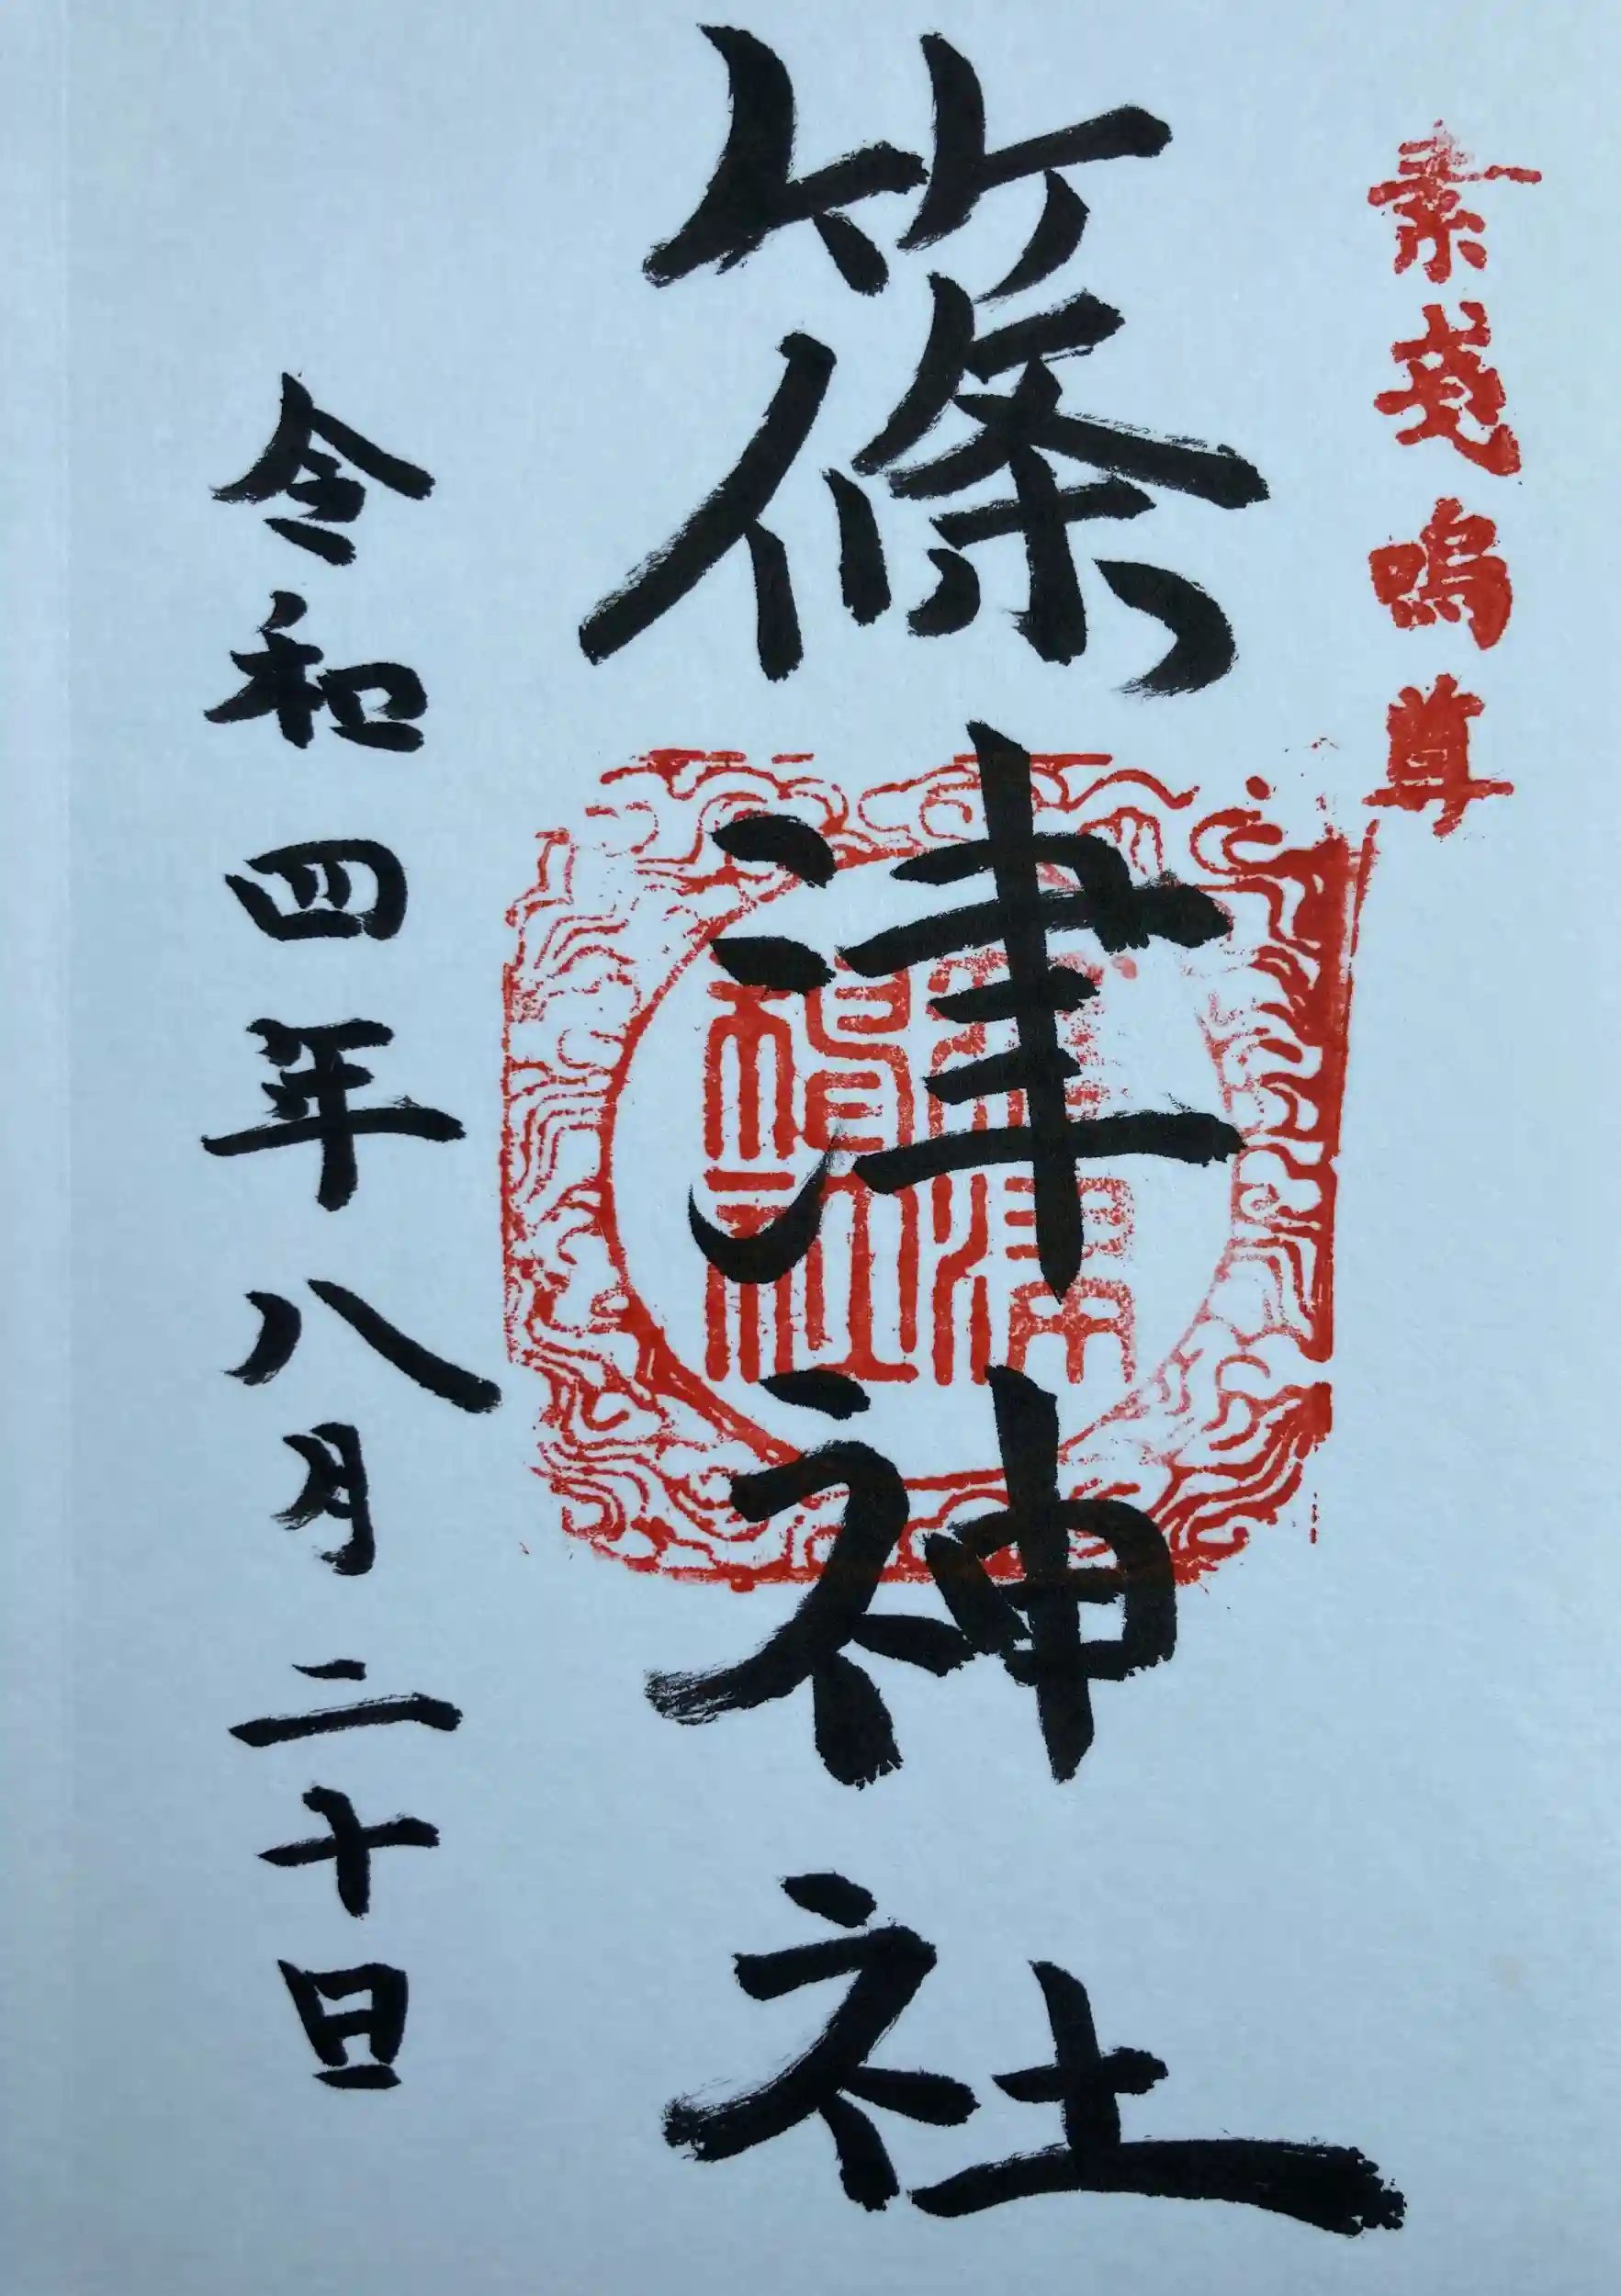 素戔嗚尊
篠津神社
篠津神社
令和四年八月二十日